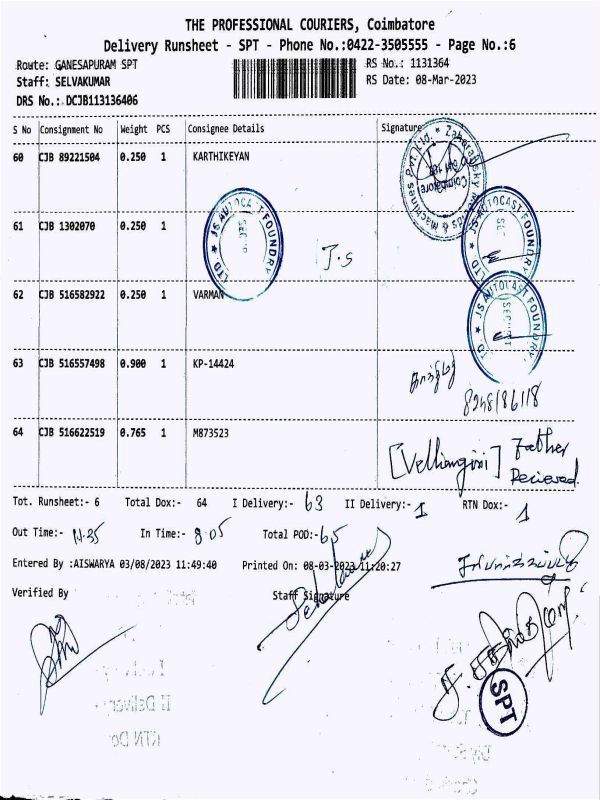 THE PROFESSIONAL COURIERS, Coimbatore
Delivery Runsheet - SPT - Phone No.:0422-3505555 - Page No.:6
Route: GANESAPURAM SPT
RS No.: 1131364
Staff: SELVAKUMAR
RS Date: 08-Mar-2023
DRS No.: DCJB113136406
S No Consignment No Weight PCS Consignee Details Signature
60 CJB 89221504 0.250 1 KARTHIKEYAN
Machines Pvt. Ltd.
Coimbatore
61 CJB 1302070 0.250 1
JS AUTOCAST FOUNDRY LTD
J.S
JS AUTOCAST FOUNDRY LTD
62 CJB 516582922 0.250 1 VARMAN
JS AUTOCAST FOUNDRY LTD
63 CJB 516557498 0.900 1 KP-14424
64 CJB 516622519 0.765 1 M873523
[Velliangiri] Father
Recieved.
Tot. Runsheet:- 6 Total Dox:- 64 I Delivery:- 63 II Delivery:- 1 RTN Dox:- 1
Out Time:- 11.35 In Time:- 8.05 Total POD:- 65
Entered By :AISWARYA 03/08/2023 11:49:40 Printed On: 08-03-2023 11:20:27
Verified By Staff Signature
SPT